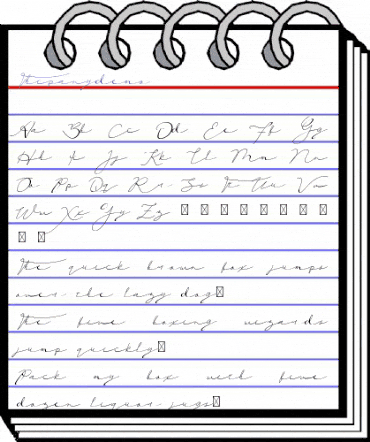 Aa Bb Cc Dd Ee Ff Gg
Hh Ii Jj Kk Ll Mm Nn
Oo Pp Qq Rr Ss Tt Uu Vv
Ww Xx Yy Zz
The quick brown fox jumps
over the lazy dog
The five boxing wizards
jump quickly
Pack my box with five
dozen liquor jugs